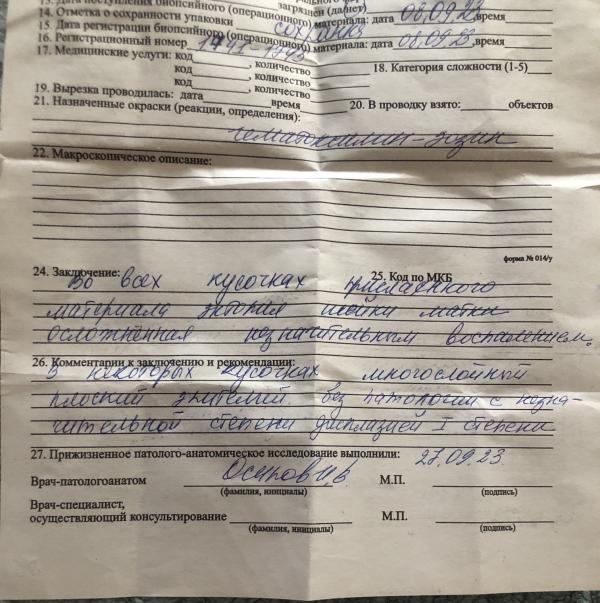 13. Дата поступления биопсийного (операционного)
загрязнен (да/нет)
14. Отметка о сохранности упаковки сохранна
материала: дата 08.09.23 время
15. Дата регистрации биопсийного (операционного) материала: дата 08.09.23, время
16. Регистрационный номер 1741-1743
17. Медицинские услуги: код, количество
код, количество
18. Категория сложности (1-5)
код, количество
19. Вырезка проводилась: дата время
20. В проводку взято: объектов
21. Назначенные окраски (реакции, определения):
гематоксилин-эозин
22. Макроскопическое описание:
форма № 014/у
24. Заключение: 25. Код по МКБ
Во всех кусочках присланного
материала эктопия шейки матки
осложнённая незначительным воспалением.
26. Комментарии к заключению и рекомендации:
В некоторых кусочках многослойный
плоский эпителий без патологии с незна-
чительной степени дисплазией I степени
27. Прижизненное патолого-анатомическое исследование выполнили: 27.09.23.
Врач-патологоанатом Осипов И.В. М.П.
(фамилия, инициалы) (подпись)
Врач-специалист,
осуществляющий консультирование М.П.
(фамилия, инициалы) (подпись)